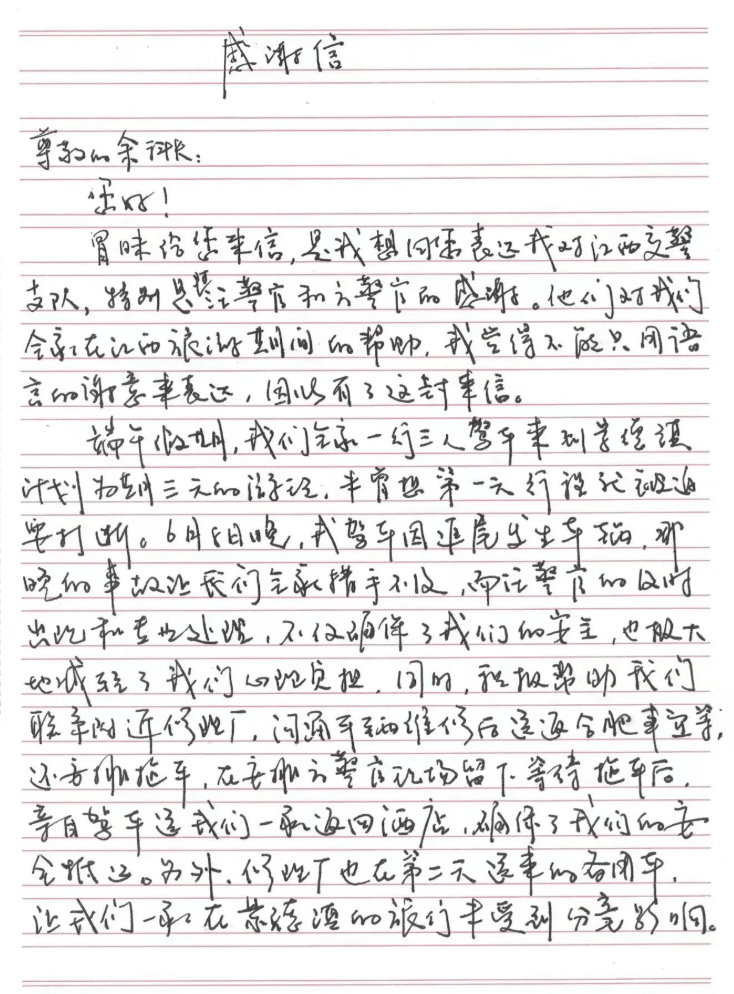 感谢信
尊敬的余科长:
您好!
冒昧给您来信,是我想向您表达我对江西交警
支队,特别是汪警官和方警官的感谢。他们对我们
全家在江西旅游期间的帮助,我觉得不能只用语
言的谢意来表达,因此有了这封来信。
端午假期,我们全家一行三人驾车来到景德镇
计划为期三天的游玩,未曾想第一天行程就被迫
要打断。6月8日晚,我驾车因追尾发生车祸,那
晚的事故让我们全家措手不及,而汪警官的及时
出现和专业处理,不仅确保了我们的安全,也极大
地减轻了我们心理负担,同时,积极帮助我们
联系附近修理厂,沟通车辆维修后送返合肥事宜等,
还安排拖车,在安排方警官现场留下等待拖车后,
亲自驾车送我们一家返回酒店,确保了我们的安
全抵达。另外,修理厂也在第二天送来的备用车,
让我们一家在景德镇的旅行未受到分毫影响。